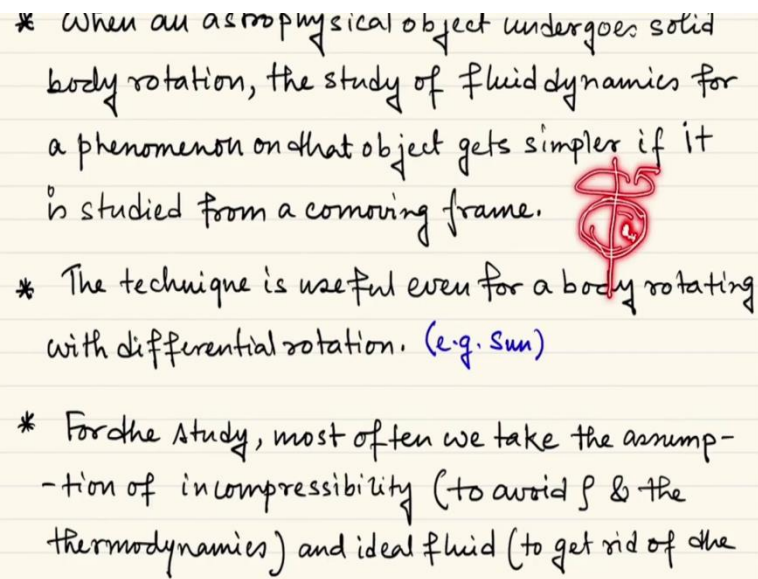 * When an astrophysical object undergoes solid
body rotation, the study of fluid dynamics for
a phenomenon on that object gets simpler if it
is studied from a comoving frame.
* The technique is useful even for a body rotating
with differential rotation. (e.g. Sun)
* For the study, most often we take the assump-
-tion of incompressibility (to avoid ρ & the
thermodynamics) and ideal fluid (to get rid of the